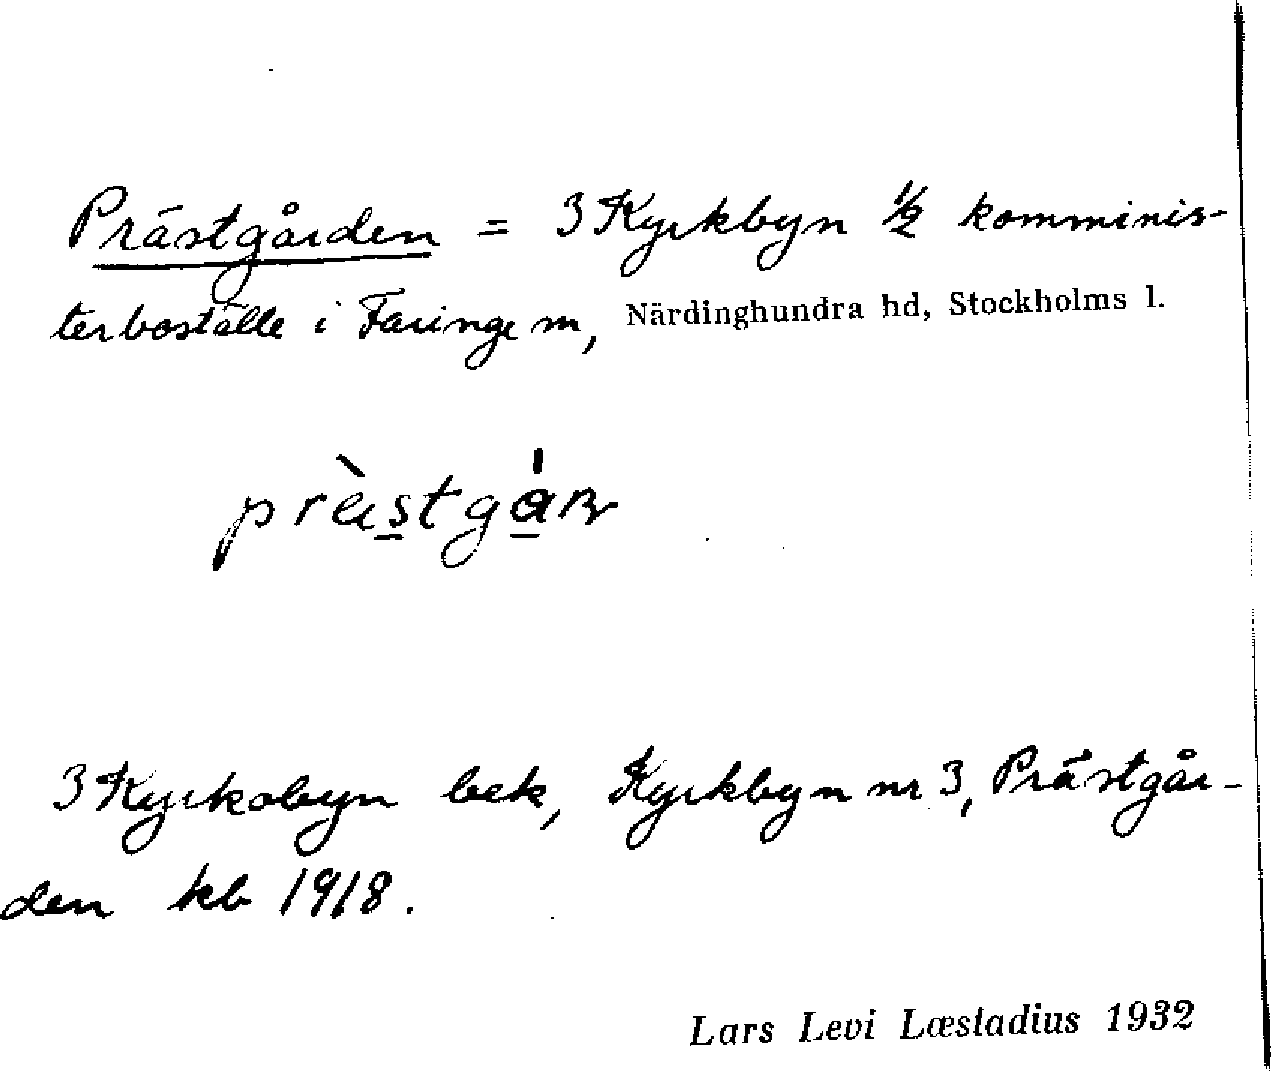 Prästgården = 3 Kyrkbyn ½ komminis-
terboställe i Faringe m, Närdinghundra hd, Stockholms l.
3 Kyrkobyn bek, Kyrkbyn nr 3, Prästgår-
den kb 1918.
Lars Levi Læstadius 1932